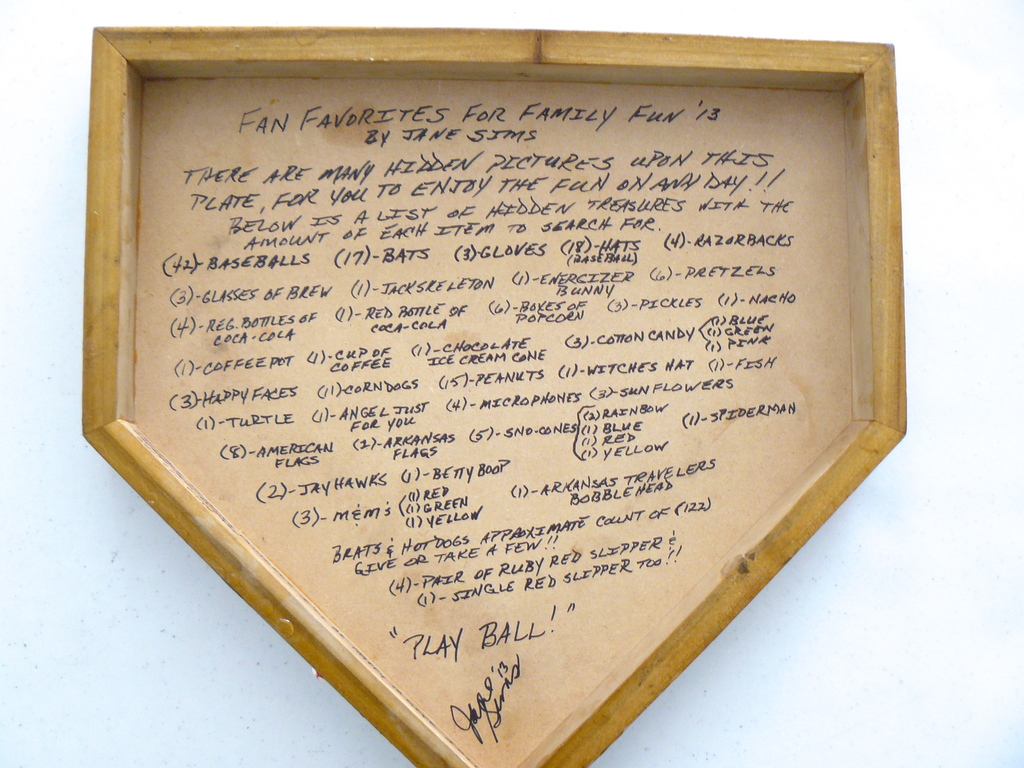 FAN FAVORITES FOR FAMILY FUN '13
BY JANE SIMS
THERE ARE MANY HIDDEN PICTURES UPON THIS
PLATE, FOR YOU TO ENJOY THE FUN ON ANY DAY!!
BELOW IS A LIST OF HIDDEN TREASURES WITH THE
AMOUNT OF EACH ITEM TO SEARCH FOR.
(42)-BASEBALLS (17)-BATS (3)-GLOVES (18)-HATS (4)-RAZORBACKS
(BASEBALL)
(3)-GLASSES OF BREW (1)-JACKSKELETON (1)-ENERGIZER (6)-PRETZELS
BUNNY
(4)-REG. BOTTLES OF (1)-RED BOTTLE OF (6)-BOXES OF (3)-PICKLES (1)-NACHO
COCA-COLA COCA-COLA POPCORN
(1)-COFFEEPOT (1)-CUP OF (1)-CHOCOLATE (3)-COTTON CANDY (1) BLUE
COFFEE ICE CREAM CONE (1) GREEN
(1) PINK
(3)-HAPPY FACES (11)CORNDOGS (15)-PEANUTS (1)-WITCHES HAT (1)-FISH
(1)-TURTLE (1)-ANGEL JUST (4)-MICROPHONES (3)-SUNFLOWERS
FOR YOU
(8)-AMERICAN (2)-ARKANSAS (5)-SNO-CONES (2) RAINBOW (1)-SPIDERMAN
FLAGS FLAGS (1) BLUE
(1) RED
(1) YELLOW
(2)-JAYHAWKS (1)-BETTY BOOP
(3)-M&M's (1) RED (1)-ARKANSAS TRAVELERS
(1) GREEN BOBBLEHEAD
(1) YELLOW
BRATS & HOTDOGS APPROXIMATE COUNT OF (122)
GIVE OR TAKE A FEW!!
(4)-PAIR OF RUBY RED SLIPPER &
(1)-SINGLE RED SLIPPER TOO!!
"PLAY BALL!"
Jane '13
Sims